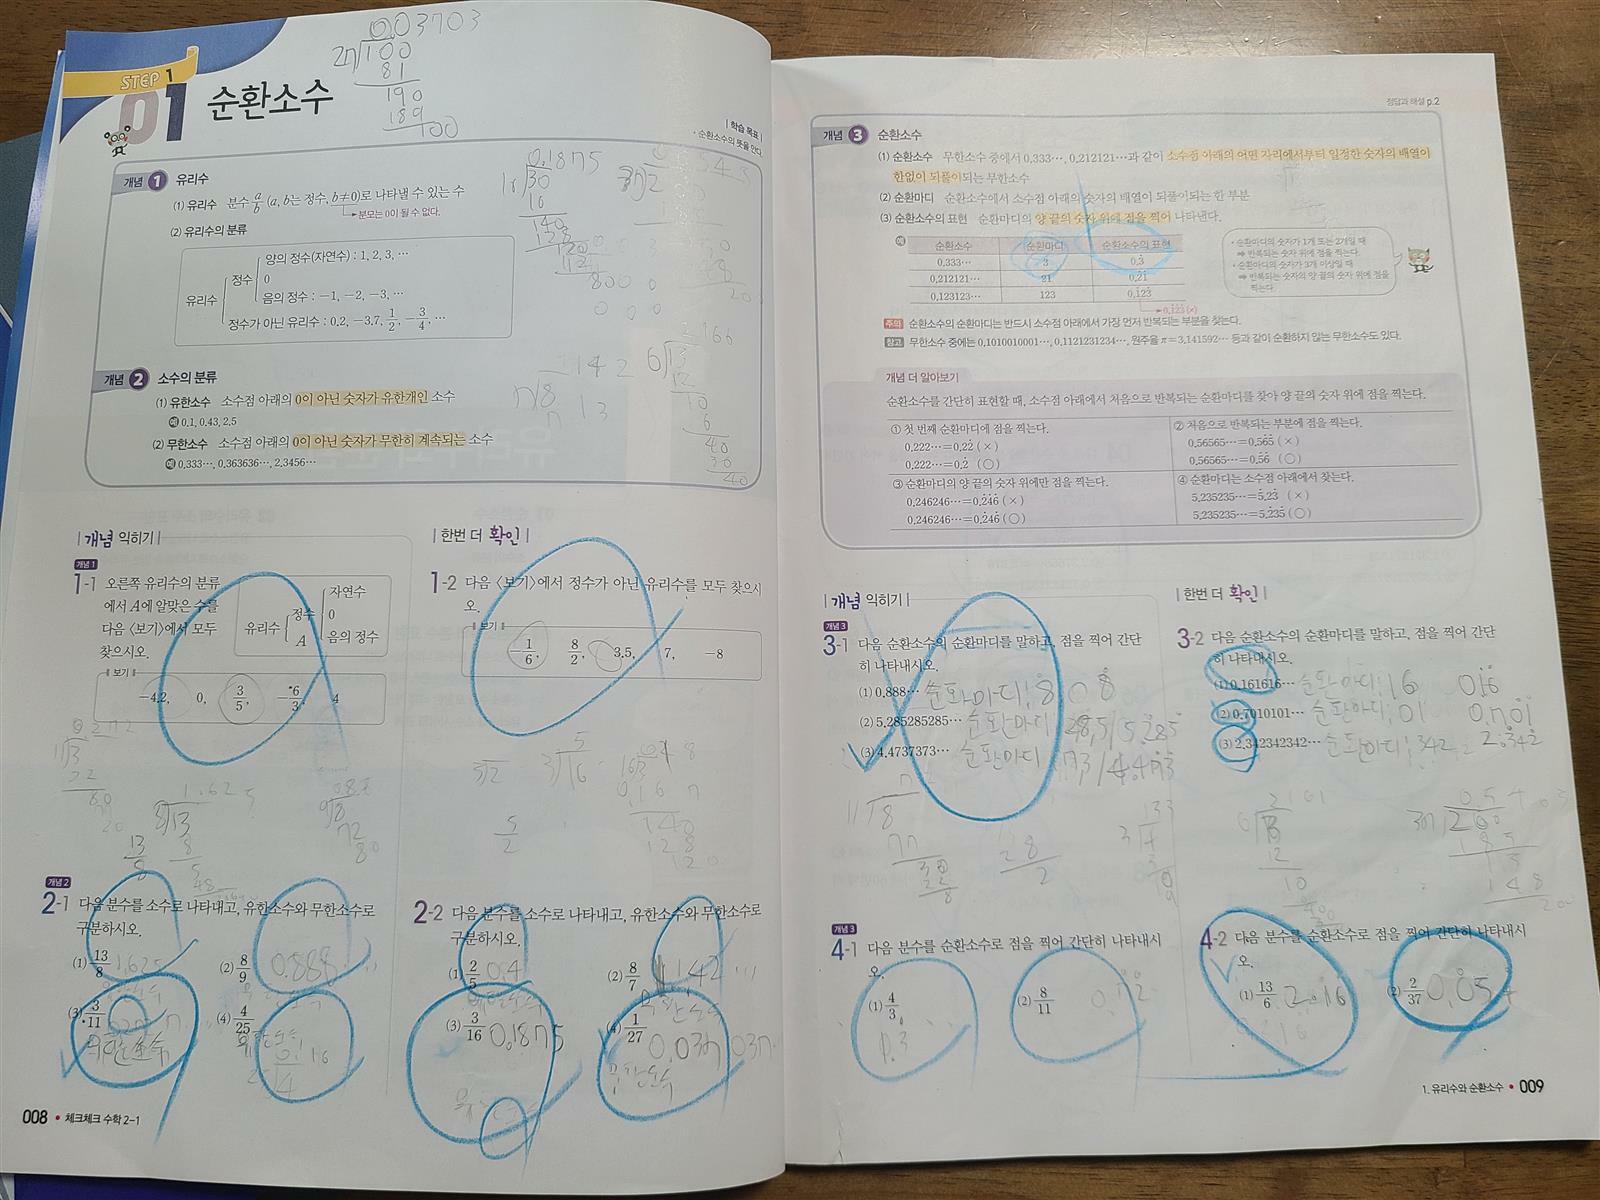 STEP 1
01 순환소수
0.03703
27 100
81
190
189
100
| 학습 목표 |
• 순환소수의 뜻을 안다.
개념 1 유리수
(1) 유리수 분수 a/b (a, b는 정수, b≠0)로 나타낼 수 있는 수
분모는 0이 될 수 없다.
(2) 유리수의 분류
유리수
정수
양의 정수(자연수) : 1, 2, 3, …
0
음의 정수 : −1, −2, −3, …
정수가 아닌 유리수 : 0.2, −3.7, 1/2, −3/4, …
개념 2 소수의 분류
(1) 유한소수 소수점 아래의 0이 아닌 숫자가 유한개인 소수
예 0.1, 0.43, 2.5
(2) 무한소수 소수점 아래의 0이 아닌 숫자가 무한히 계속되는 소수
예 0.333…, 0.363636…, 2.3456…
0.1875
30
16
140
128
| 개념 익히기 |
개념 1
1-1 오른쪽 유리수의 분류
에서 A에 알맞은 수를
다음 〈보기〉에서 모두
찾으시오.
유리수
정수
A
자연수
0
음의 정수
보기
−4.2, 0, 3/5, −6/3, 4
| 한번 더 확인 |
1-2 다음 〈보기〉에서 정수가 아닌 유리수를 모두 찾으시
오.
보기
−1/6, 8/2, 3.5, 7, −8
1.625
8 13
8
5
48
개념 2
2-1 다음 분수를 소수로 나타내고, 유한소수와 무한소수로
구분하시오.
(1) 13/8 1.625
(2) 8/9 0.888…
(3) 3/11
(4) 4/25
2-2 다음 분수를 소수로 나타내고, 유한소수와 무한소수로
구분하시오.
(1) 2/5 0.4
(2) 8/7 1.142…
(3) 3/16 0.1875
(4) 1/27 0.037037…
무한소수
008 • 체크체크 수학 2-1
정답과 해설 p.2
개념 3 순환소수
(1) 순환소수 무한소수 중에서 0.333…, 0.212121…과 같이 소수점 아래의 어떤 자리에서부터 일정한 숫자의 배열이
한없이 되풀이되는 무한소수
(2) 순환마디 순환소수에서 소수점 아래의 숫자의 배열이 되풀이되는 한 부분
(3) 순환소수의 표현 순환마디의 양 끝의 숫자 위에 점을 찍어 나타낸다.
예
순환소수 순환마디 순환소수의 표현
0.333… 3 0.3̇
0.212121… 21 0.2̇1̇
0.123123… 123 0.1̇23̇
0.1̇2̇3̇ (×)
• 순환마디의 숫자가 1개 또는 2개일 때
➡ 반복되는 숫자 위에 점을 찍는다.
• 순환마디의 숫자가 3개 이상일 때
➡ 반복되는 숫자의 양 끝의 숫자 위에 점을
찍는다.
주의 순환소수의 순환마디는 반드시 소수점 아래에서 가장 먼저 반복되는 부분을 찾는다.
참고 무한소수 중에는 0.1010010001…, 0.1121231234…, 원주율 π=3.141592… 등과 같이 순환하지 않는 무한소수도 있다.
개념 더 알아보기
순환소수를 간단히 표현할 때, 소수점 아래에서 처음으로 반복되는 순환마디를 찾아 양 끝의 숫자 위에 점을 찍는다.
① 첫 번째 순환마디에 점을 찍는다.
0.222…=0.2̇2̇ (×)
0.222…=0.2̇ (○)
② 처음으로 반복되는 부분에 점을 찍는다.
0.56565…=0.56̇5̇ (×)
0.56565…=0.5̇6̇ (○)
③ 순환마디의 양 끝의 숫자 위에만 점을 찍는다.
0.246246…=0.2̇4̇6̇ (×)
0.246246…=0.2̇46̇ (○)
④ 순환마디는 소수점 아래에서 찾는다.
5.235235…=5̇.23̇ (×)
5.235235…=5.2̇35̇ (○)
| 개념 익히기 |
개념 3
3-1 다음 순환소수의 순환마디를 말하고, 점을 찍어 간단
히 나타내시오.
(1) 0.888… 순환마디:8 0.8̇
(2) 5.285285285… 순환마디 285/ 5.2̇85̇
(3) 4.4737373… 순환마디 73/4.47̇3̇
| 한번 더 확인 |
3-2 다음 순환소수의 순환마디를 말하고, 점을 찍어 간단
히 나타내시오.
(1) 0.161616… 순환마디:16 0.1̇6̇
(2) 0.7010101… 순환마디:01 0.70̇1̇
(3) 2.342342342… 순환마디:342 2.3̇42̇
개념 3
4-1 다음 분수를 순환소수로 점을 찍어 간단히 나타내시
오.
(1) 4/3
(2) 8/11
4-2 다음 분수를 순환소수로 점을 찍어 간단히 나타내시
오.
(1) 13/6 2.16
(2) 2/37
1. 유리수와 순환소수 • 009